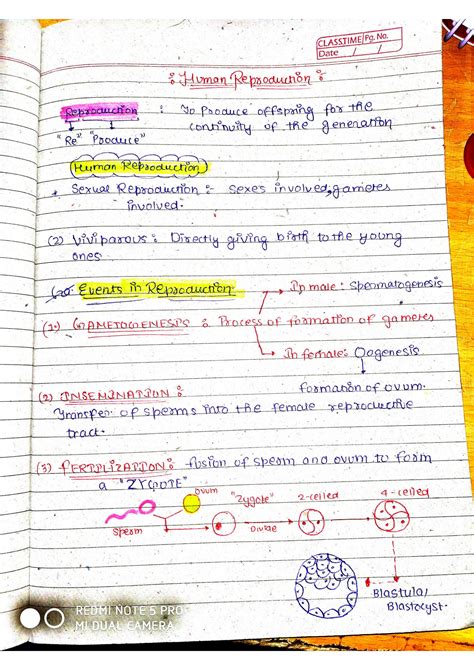 CLASSTIME Pg. No.
Date / /
Human Reproduction :
Reproduction : To Produce offspring for the
continuity of the generation
"Re" "Produce"
Human Reproduction
* Sexual Reproduction :- Sexes involved, gametes
involved.
(2) Viviparous : Directly giving birth to the young
ones
Events in REproduction
In male: Spermatogenesis
(1.) GAMETOGENESIS : Process of formation of gametes
In female: Oogenesis
formation of ovum.
(2) INSEMINATION :
Transfer of sperms into the female reproductive
tract.
(3) FERTILIZATION : fusion of sperm and ovum to form
a "ZYGOTE"
ovum "Zygote" 2-celled 4-celled
sperm Divide
Blastula/
Blastocyst.
REDMI NOTE 5 PRO
MI DUAL CAMERA